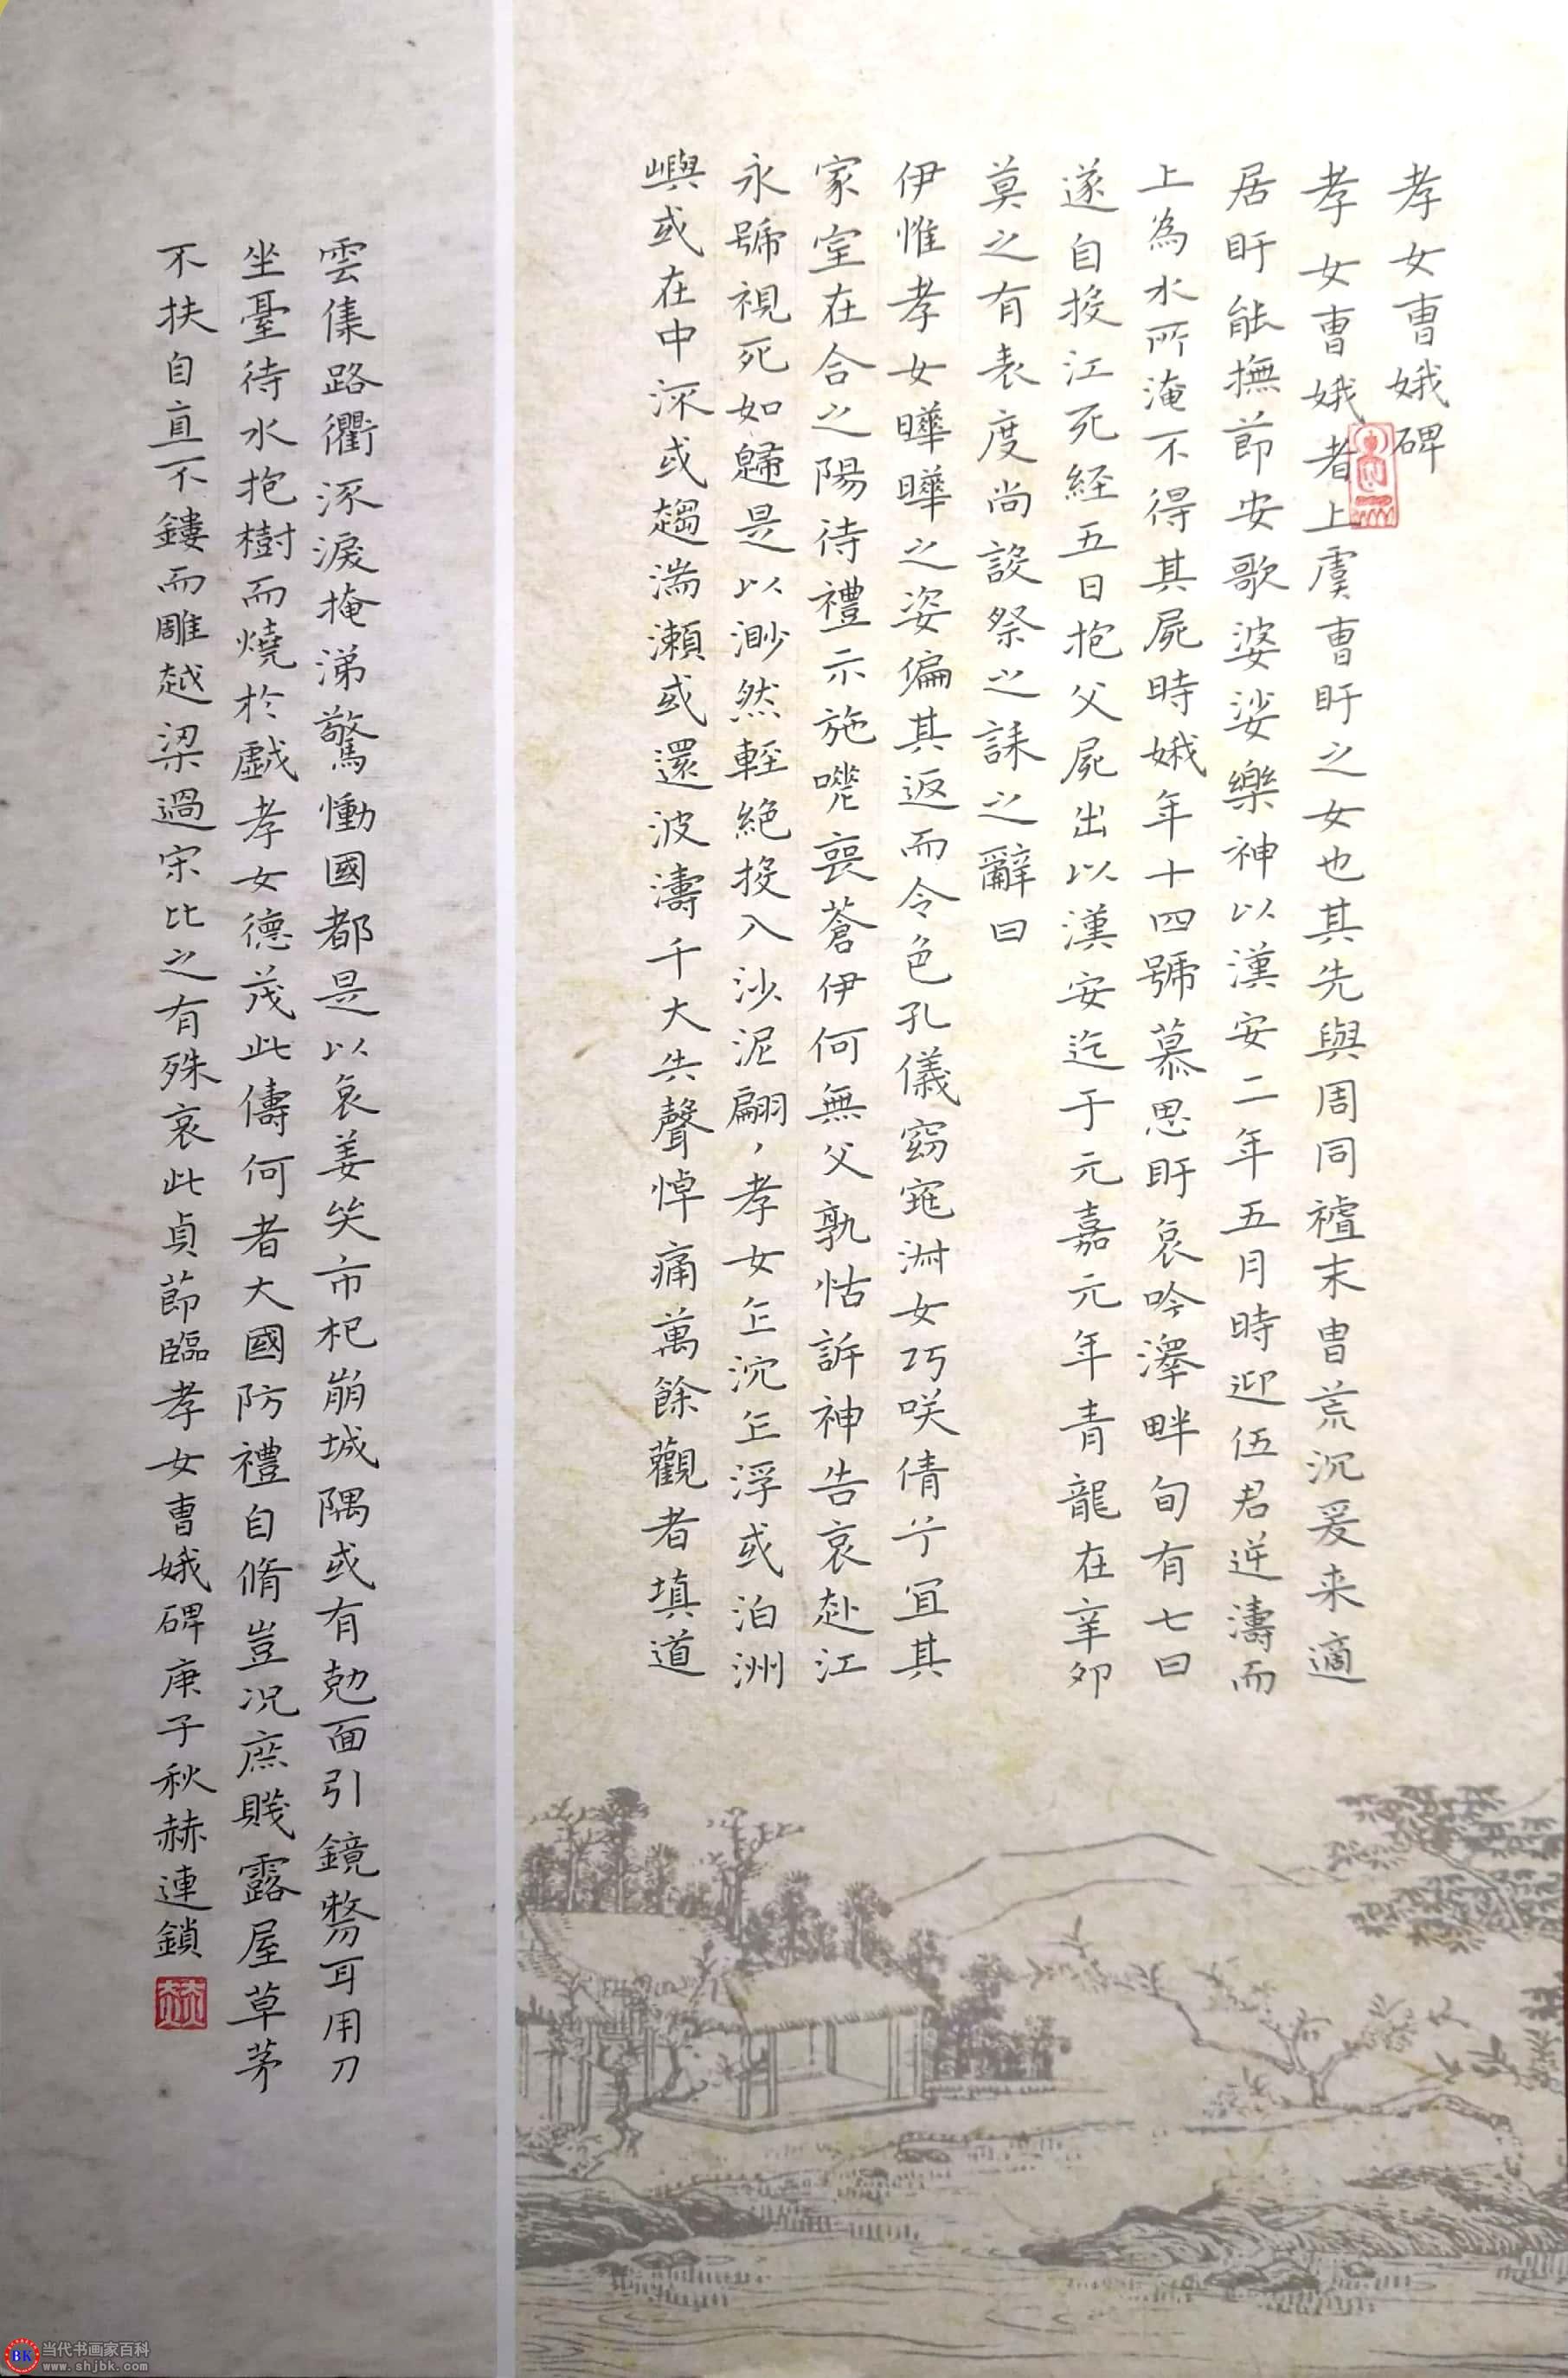 孝女曹娥碑
孝女曹娥者上虞曹盱之女也其先與周同禃末曺荒沉爰来適
居盱能撫節安歌婆娑樂神以漢安二年五月時迎伍君逆濤而
上為水所淹不得其屍時娥年十四號慕思盱哀吟澤畔旬有七日
遂自投江死経五日抱父屍出以漢安迄于元嘉元年青龍在辛卯
莫之有表度尚設祭之誄之辭曰
伊惟孝女曄曄之姿偏其返而令色孔儀窈窕淑女巧咲倩兮宜其
家室在合之陽待禮示施嗟喪蒼伊何無父孰怙訴神告哀赴江
永號視死如歸是以渺然輕絶投入沙泥翩〻孝女乍沉乍浮或泊洲
嶼或在中流或趨湍瀬或還波濤千夫失聲悼痛萬餘觀者填道
雲集路衢流淚掩涕驚慟國都是以哀姜哭市杞崩城隅或有勀面引鏡剺耳用刀
坐臺待水抱樹而燒於戲孝女德茂此儔何者大國防禮自脩豈况庶賤露屋草茅
不扶自直不鏤而雕越梁過宋比之有殊哀此貞節臨孝女曹娥碑庚子秋赫連鎖
赫
BK 当代书画家百科
www.shjbk.com